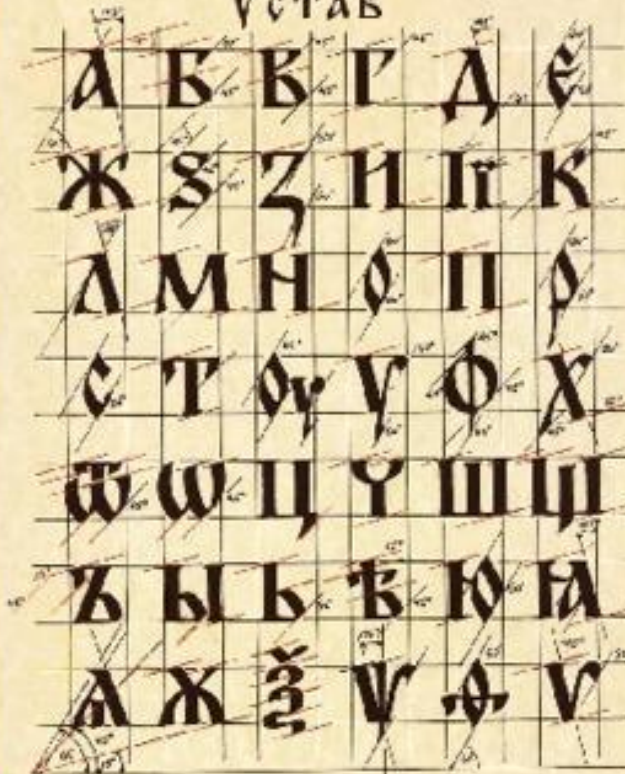 УСТАВ
А Б В Г Д Є
Ж Ѕ З И Ії К
Л М Н О П Р
С Т Оу Ѵ Ф Х
Ѿ Ѡ Ц Ч Ш Щ
Ъ Ы Ь Ѣ Ю Ꙗ
Ѧ Ж Ѯ Ѱ Ѳ Ѵ